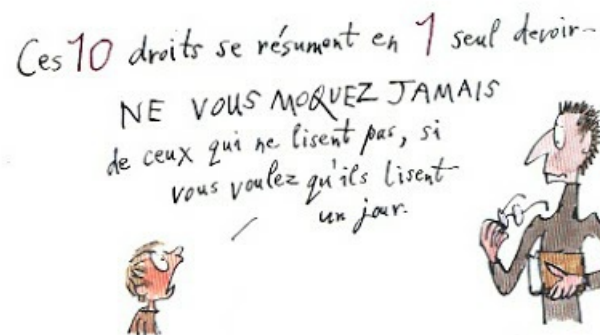 Ces 10 droits se résument en 1 seul devoir-
NE VOUS MOQUEZ JAMAIS
de ceux qui ne lisent pas, si
vous voulez qu'ils lisent
un jour.